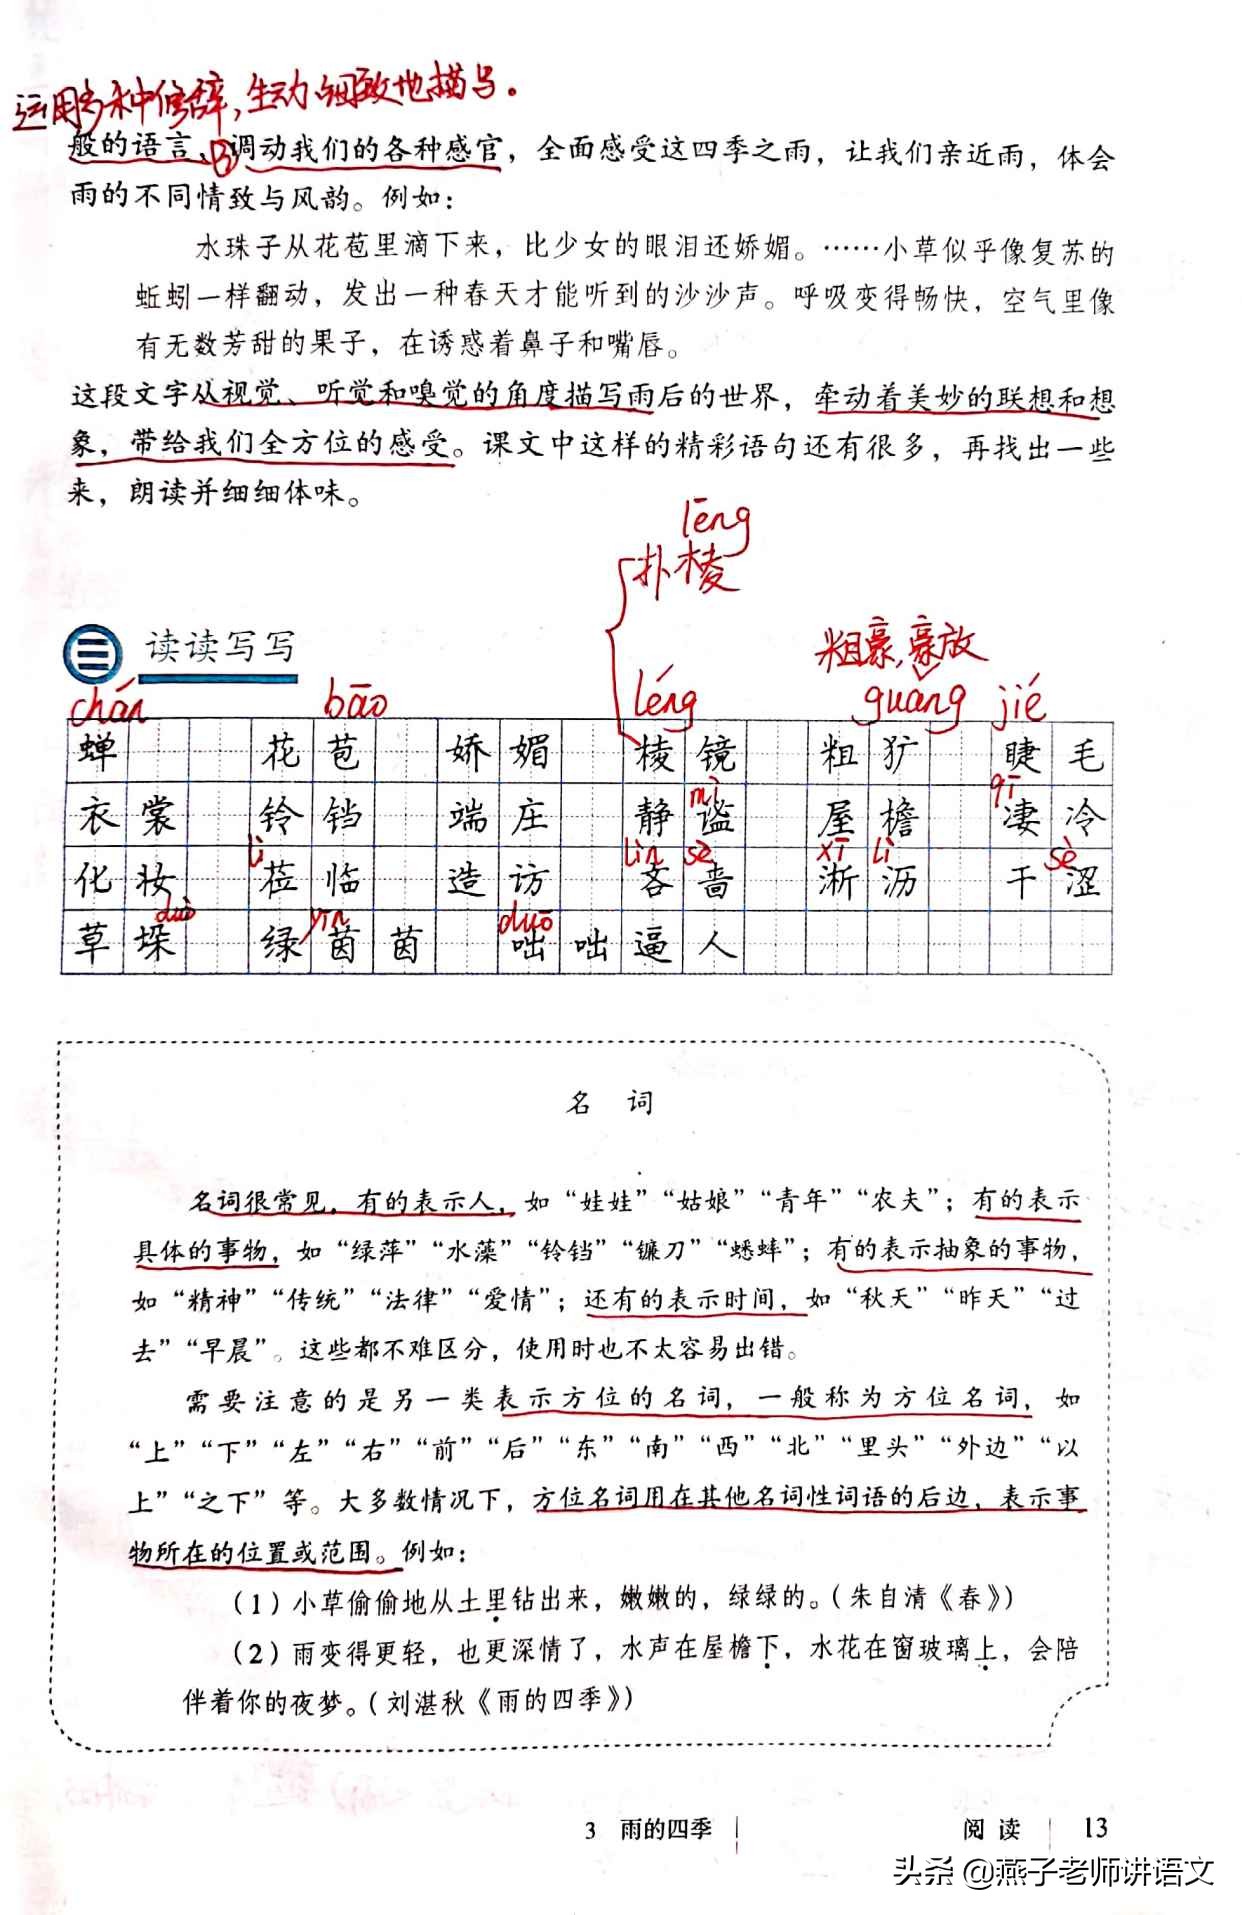 运用多种修辞,生动细致地描写。
般的语言、B调动我们的各种感官，全面感受这四季之雨，让我们亲近雨，体会
雨的不同情致与风韵。例如：
水珠子从花苞里滴下来，比少女的眼泪还娇媚。……小草似乎像复苏的
蚯蚓一样翻动，发出一种春天才能听到的沙沙声。呼吸变得畅快，空气里像
有无数芳甜的果子，在诱惑着鼻子和嘴唇。
这段文字从视觉、听觉和嗅觉的角度描写雨后的世界，牵动着美妙的联想和想
象，带给我们全方位的感受。课文中这样的精彩语句还有很多，再找出一些
来，朗读并细细体味。
lēng
扑棱
三 读读写写
粗豪,豪放
chán bāo léng guǎng jié
蝉 花苞 娇媚 棱镜 粗犷 睫毛
mì qī
衣裳 铃铛 端庄 静谧 屋檐 凄冷
lì lìn sè xī lì sè
化妆 莅临 造访 吝啬 淅沥 干涩
duò yīn duō
草垛 绿茵茵 咄咄逼人
名 词
名词很常见，有的表示人，如“娃娃”“姑娘”“青年”“农夫”；有的表示
具体的事物，如“绿萍”“水藻”“铃铛”“镰刀”“蟋蟀”；有的表示抽象的事物，
如“精神”“传统”“法律”“爱情”；还有的表示时间，如“秋天”“昨天”“过
去”“早晨”。这些都不难区分，使用时也不太容易出错。
需要注意的是另一类表示方位的名词，一般称为方位名词，如
“上”“下”“左”“右”“前”“后”“东”“南”“西”“北”“里头”“外边”“以
上”“之下”等。大多数情况下，方位名词用在其他名词性词语的后边，表示事
物所在的位置或范围。例如：
（1）小草偷偷地从土里钻出来，嫩嫩的，绿绿的。（朱自清《春》）
（2）雨变得更轻，也更深情了，水声在屋檐下，水花在窗玻璃上，会陪
伴着你的夜梦。（刘湛秋《雨的四季》）
3 雨的四季 | 阅读 | 13
头条 @燕子老师讲语文